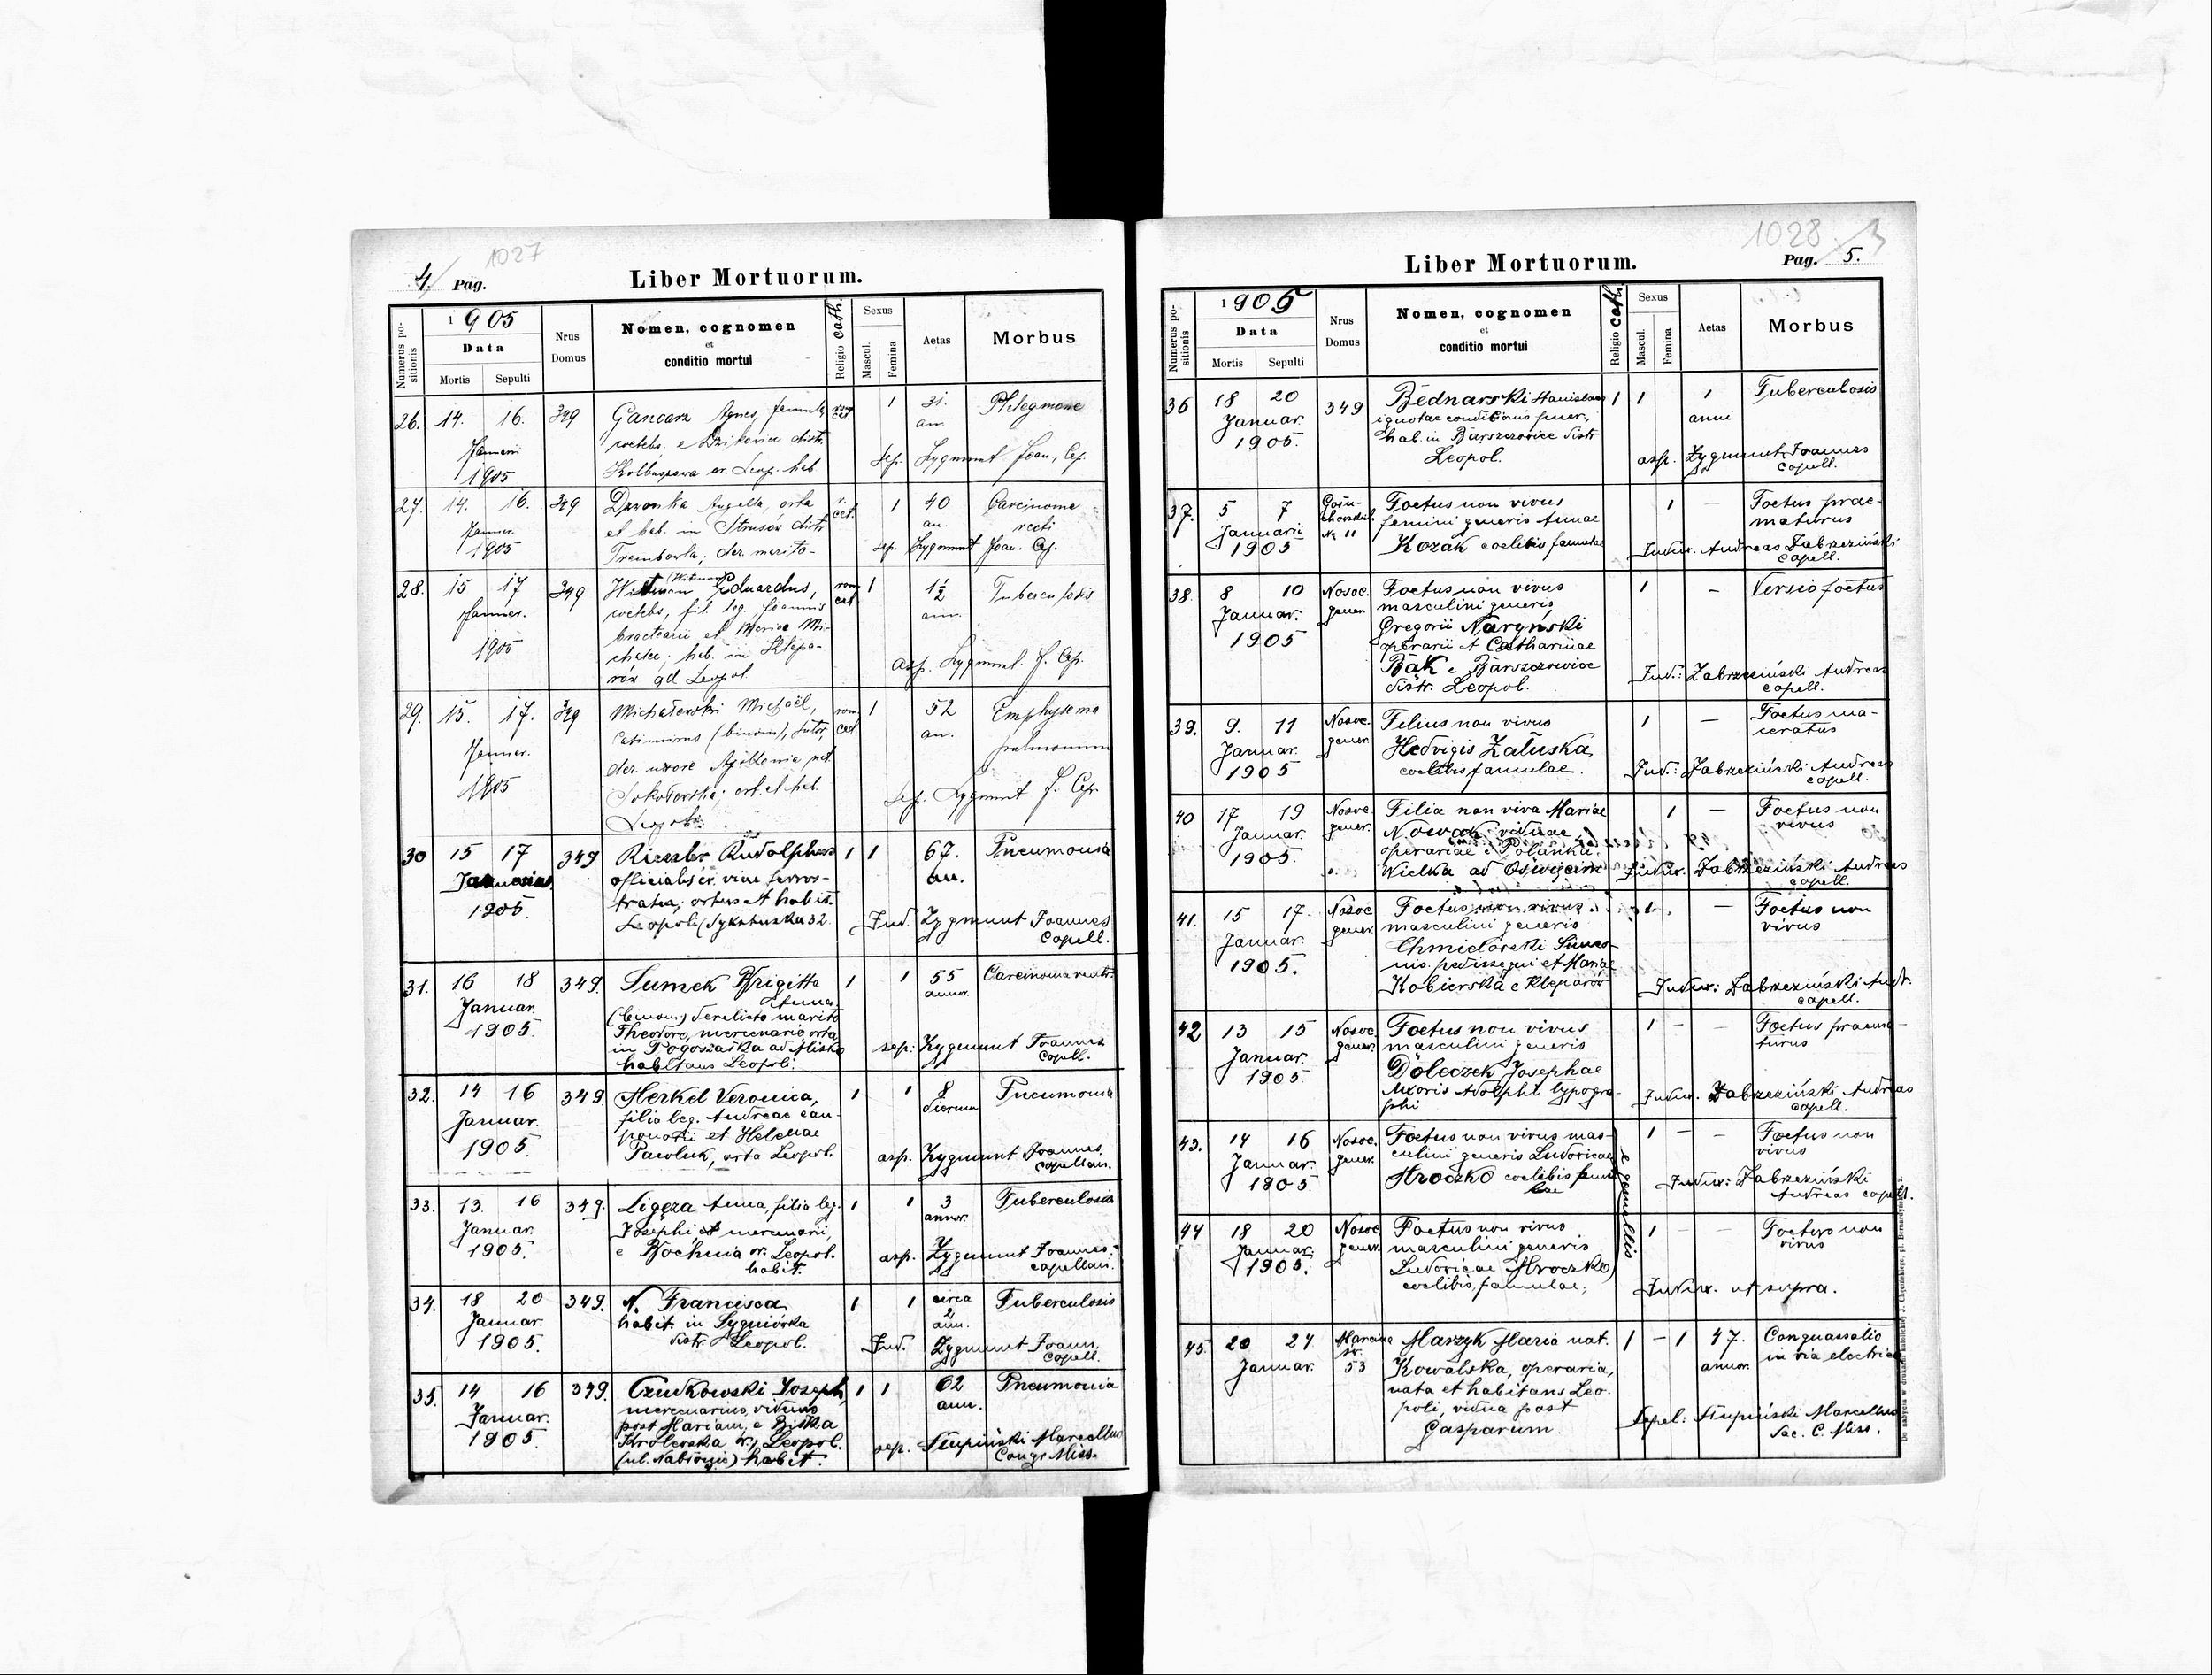 1027
4/ Pag.
Liber Mortuorum.
Numerus positionis
1905
Data
Mortis Sepulti
Nrus Domus
Nomen, cognomen
et
conditio mortui
Religio cath.
Sexus
Mascul. Femina
Aetas
Morbus
26. 14. 16. 349 Gancarz Agnes, famula 1 31. Phlegmone
coelebs, e Dzikowiec distr. an.
1905 Kolbuszowa or. Leop. hab. sep. Zygmunt Joan. Cap.
27. 14. 16. 349 Angella, orta 1 40 Carcinoma
et hab. in Strusów distr. an. recti
1905 Trembowla; der. marito- sep. Zygmunt Joan. Cap.
28. 15 17 349 Eduardus, rom. cat. 1 1½ Tuberculosis
coelebs, fil. leg. Joannis ann.
bractearii et Mariae Mi-
1905
chalec; hab. in Klepa-
rów ad Leopol. asp. Zygmunt J. Cap.
29. 15. 17. 349 Michałowski Michaël, rom. cat. 1 52 Emphysema
Casimirus (binom), sutor, an. pulmonum
der. uxore Apollonia, nat.
1905 Sokołowska; ort. et hab. sep. Zygmunt J. Cap.
Leopoli.
30 15 17 349 Rudolphus 1 1 67. Pneumonia
officialis er. viae ferros- an.
1905. tratae; ortus et habit.
Leopoli (Sykstuska 32. Jud. Zygmunt Joannes
Capell.
31. 16 18 349. Sumek Brigitta 1 1 55 Carcinoma ventr.
Januar. Anna annor.
1905. (binom.) derelicto marito
Theodoro, mercenario, orta
in ad Nisko sep: Zygmunt Joannes
habitans Leopoli. Capell.
32. 14 16 349. Herkel Veronica, 1 1 8 Pneumonia
Januar. filia leg. Andreae cau- dierum
1905. ponarii et Helenae
Pawluk, orta Leopol. asp. Zygmunt Joannes
capellan.
33. 13. 16 349. Ligęza Anna, filia leg. 1 1 3 Tuberculosis
Januar. Josephi et mercenarii, annor.
1905. e Bochnia or. Leopol. asp. Zygmunt Joannes
habit. capellan.
34. 18 20 349. N. Francisca 1 1 circa Tuberculosis
Januar. habit. in Sygniówka 2 ann.
1905. distr. Leopol. Jud. Zygmunt Joann.
Capell.
35. 14 16 349. Czudkowski Joseph, 1 1 62 Pneumonia
Januar. mercenarius, viduus ann.
1905. post Mariam, e Biłka
Królewska h., Leopol. sep. Słupiński Marcellus
habit. Congr. Miss.
1028
Liber Mortuorum.
Pag. 5.
Numerus positionis
1905
Data
Mortis Sepulti
Nrus Domus
Nomen, cognomen
et
conditio mortui
Religio cath.
Sexus
Mascul. Femina
Aetas
Morbus
36 18 20 349 Bednarski Stanislaus 1 1 1 Tuberculosis
Januar. ignotae conditionis puer, anni
1905. hab. in Barszczowice distr asp. Zygmunt Joannes
Leopol. capell.
37. 5 7 Foetus non vivus 1 – Foetus prae-
Januarii femini generis Annae maturus
1905 Nr 11 Kozak coelibis famulae Judur. Andreas Zabrzeziński
capell.
38. 8 10 Nosoc. gener. Foetus non vivus 1 – Versio foetus
Januar. masculini generis
1905 Gregorii Naryński
operarii et Catharinae
Bąk e Barszczowice Jud.: Zabrzeziński Andreas
distr. Leopol. capell.
39. 9. 11 Nosoc. gener. Filius non vivus 1 – Foetus ma-
Januar. Hedvigis Załuska ceratus
1905 coelibis famulae. Jud.: Zabrzeziński Andreas
capell.
40 17 19 Nosoc. gener. Filia non viva Mariae 1 – Foetus non
Januar. Nowak viduae vivus
1905. operariae e Polanka
Wielka ad Oświęcim Judur. Zabrzeziński Andreas
capell.
41. 15 17. Nosoc. gener. Foetus non vivus 1 – Foetus non
Januar. masculini generis vivus
1905. Chmielorski Simeo-
nis pedissequi et Mariae
Kobierska e Kleparów Judur: Zabrzeziński Andr.
capell.
42 13 15 Nosoc. gener. Foetus non vivus 1 – – Foetus praema-
Januar. masculini generis turus
1905. Doleczek Josephae
uxoris Adolphi typogra- Judur. Zabrzeziński Andreas
phi capell.
43. 14 16 Nosoc. gener. Foetus non vivus mas- 1 – – Foetus non
Januar. culini generis Ludovicae vivus
1905. Hroczko coelibis famu- Judur: Zabrzeziński
lae Andreas capell.
e gemellis
44 18 20 Nosoc. gener. Foetus non vivus 1 – – Foetus non
Januar. masculini generis vivus
1905. Ludovicae Hroczko
coelibis, famulae, Judur. ut supra.
45. 20 24 53 Marzyk Maria nat. 1 – 1 47. Conquassatio
Januar. Kowalska, operaria, annor. in via electrica
nata et habitans Leo-
poli, vidua post Sepel: Słupiński Marcellus
Gasparum. Sac. C. Miss.